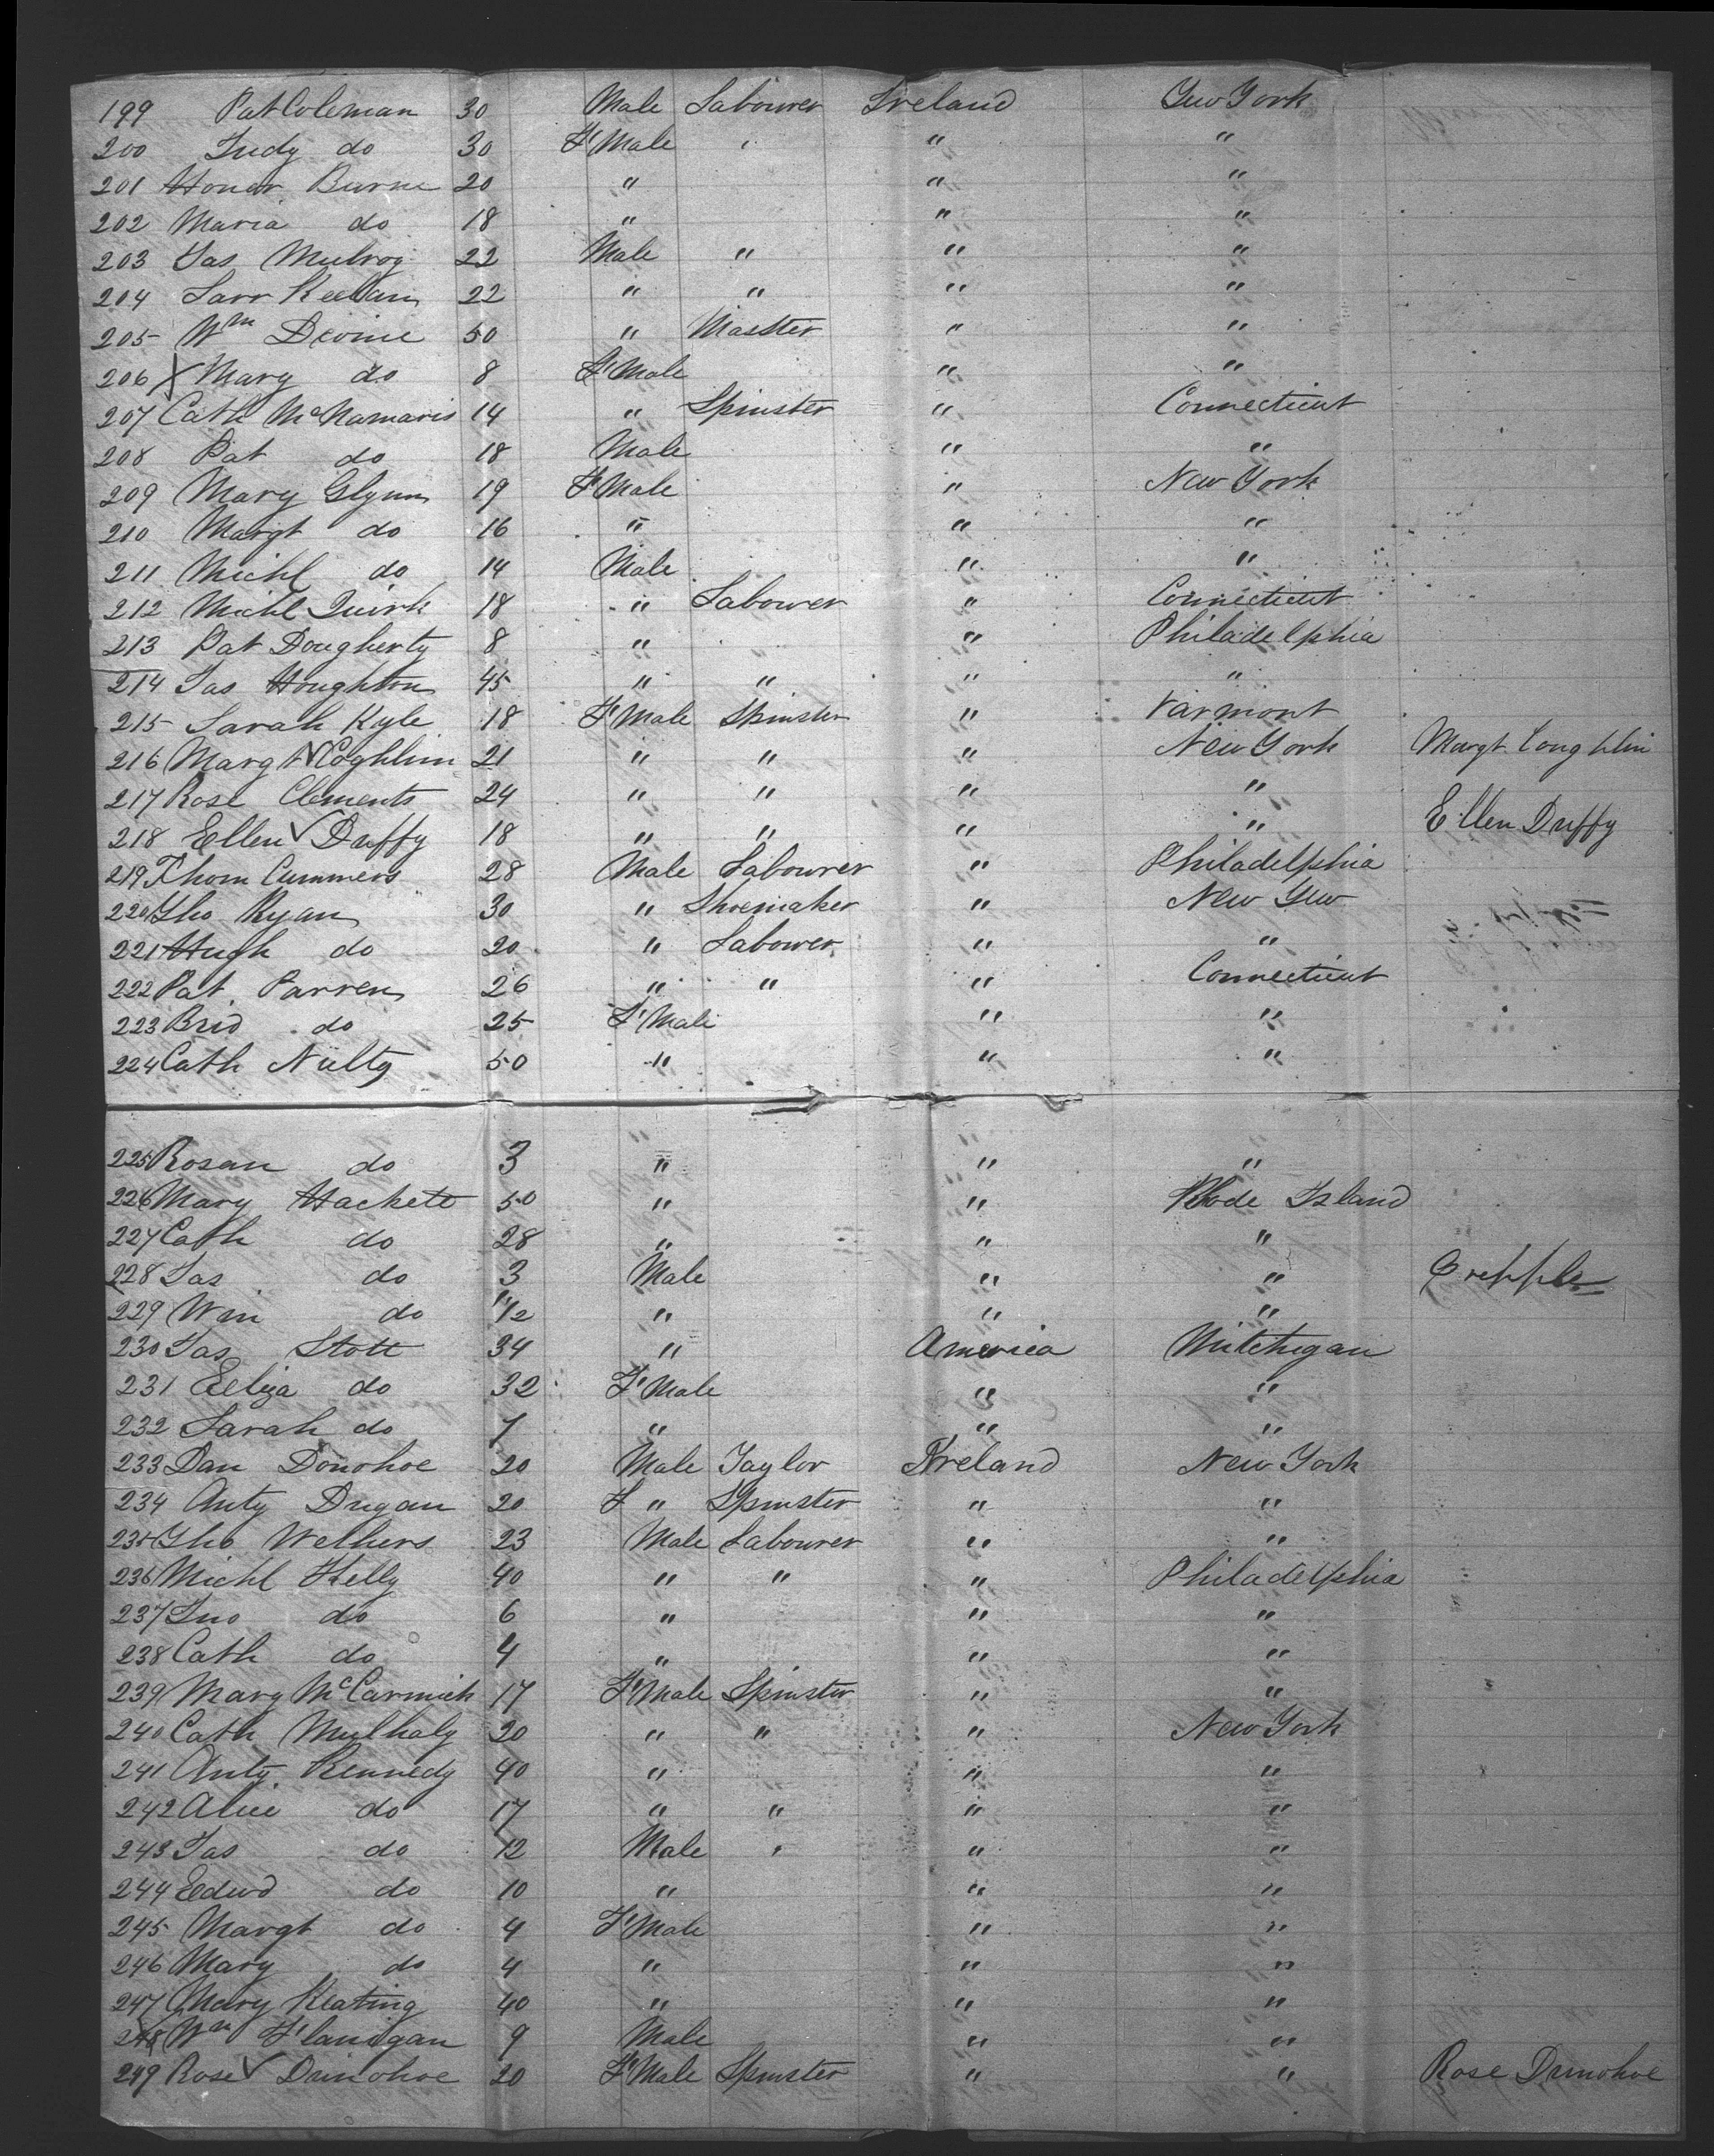 199 Pat Coleman 30 Male Labourer Ireland New York
200 Judy do 30 F Male " " "
201 Honor Burne 20 " " "
202 Maria do 18 " " "
203 Jas Mulroy 22 Male " " "
204 Larr Keelan 22 " " " "
205 Wm Devine 50 " Masster " "
206 X Mary do 8 F Male " "
207 Cath McNamaris 14 " Spinster " Connecticut
208 Pat do 18 Male " "
209 Mary Glynn 19 F Male " New York
210 Margt do 16 " " "
211 Michl do 14 Male " "
212 Michl Quirk 18 " Labourer " Connecticut
213 Pat Dougherty 8 " " Philadelphia
214 Jas Houghton 45 " " " "
215 Sarah Kyle 18 F Male Spinster " Varmont
216 Margt Coghlin 21 " " " New York Margt Coughlin
217 Rose Clements 24 " " " "
218 Ellen Duffy 18 " " " " Ellen Duffy
219 Thom Cummers 28 Male Labourer " Philadelphia
220 Tho Ryan 30 " Shoemaker " New Yew
221 Hugh do 20 " Labourer " "
222 Pat Parren 26 " " " Connecticut
223 Brid do 25 F Male " "
224 Cath Nulty 50 " " "
225 Rosan do 3 " " "
226 Mary Hackett 50 " " Rhode Island
227 Cath do 28 " " "
228 Jas do 3 Male " " Cripple
229 Wm do 11/12 " " "
230 Jas Stott 34 " America Mitchigan
231 Eeliza do 32 F Male " "
232 Sarah do 7 " " "
233 Dan Donohoe 20 Male Taylor Ireland New York
234 Anty Dugan 20 F " Spinster " "
235 Tho Welhers 23 Male Labourer " "
236 Michl Kelly 40 " " " Philadelphia
237 Jno do 6 " " "
238 Cath do 4 " " "
239 Mary McCarmick 17 F Male Spinster " "
240 Cath Mulhaly 20 " " " New York
241 Anty Kennedy 40 " " "
242 Alice do 17 " " " "
243 Jas do 12 Male " " "
244 Eedwd do 10 " " "
245 Margt do 4 F Male " "
246 Mary do 4 " " "
247 Mary Keating 40 " " "
248 Wm Flanigan 9 Male " "
249 Rose Dunohoe 20 F Male Spinster " " Rose Dunohoe